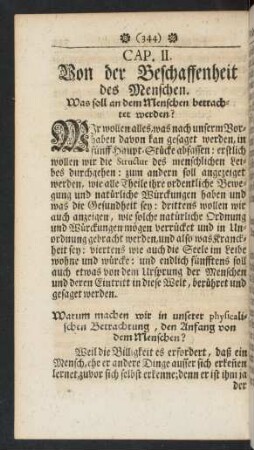 (344)
CAP. II.
Von der Beschaffenheit
des Menschen.
Was soll an dem Menschen betrach-
tet werden?
WIr wollen alles, was nach unserm Vor-
haben davon kan gesaget werden, in
fünff Haupt-Stücke abfassen: erstlich
wollen wir die Structur des menschlichen Lei-
bes durchgehen: zum andern soll angezeiget
werden, wie alle Theile ihre ordentliche Bewe-
gung und natürliche Würckungen haben und
was die Gesundheit sey: drittens wollen wir
auch anzeigen, wie solche natürliche Ordnung
und Würckungen mögen verrücket und in Un-
ordnung gebracht werden, und also was Kranck-
heit sey: viertens wie auch die Seele im Leibe
wohne und würcke: und endlich fünfftens soll
auch etwas von dem Ursprung der Menschen
und deren Eintritt in diese Welt, berühret und
gesaget werden.
Warum machen wir in unserer physicali-
schen Betrachtung, den Anfang von
dem Menschen?
Weil die Billigkeit es erfordert, daß ein
Mensch, ehe er andere Dinge ausser sich erkennen
lernet, zuvor sich selbst erkenne; denn er ist ihm ja
der